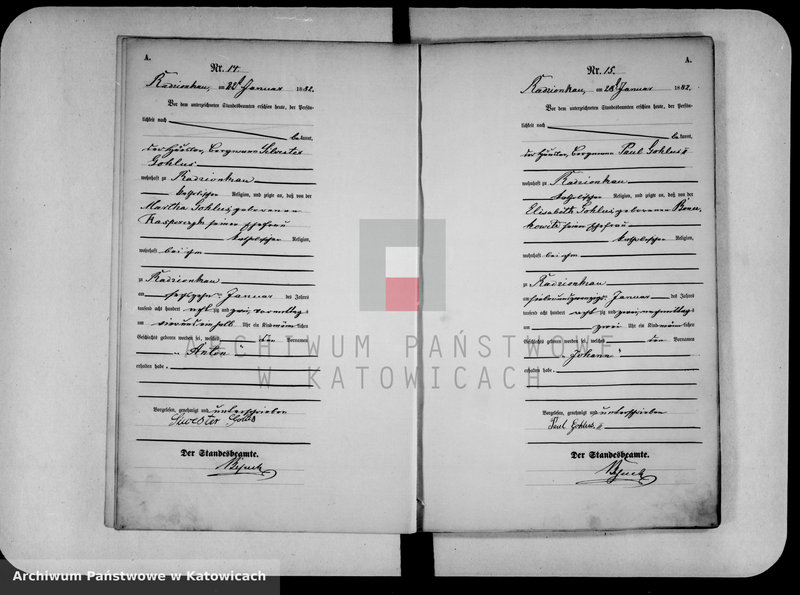 A.
Nr. 14
Radzionkau, am 22t Januar 1882.
Vor dem unterzeichneten Standesbeamten erschien heute, der Persön-
lichkeit nach
bekannt,
der Häusler, Bergmann Silvester
Gohlus
wohnhaft zu Radzionkau
katholischer Religion, und zeigte an, daß von der
Martha Gohlus, geborenen
Kasperczyk seiner Ehefrau
katholischer Religion,
wohnhaft bei ihm
zu Radzionkau
am sechszehn ten Januar des Jahres
tausend acht hundert acht zig und zwei, Vormittags
um vier und ein halb Uhr ein Kind männlichen
Geschlechts geboren worden sei, welches den Vornamen
„Anton"
erhalten habe.
Vorgelesen, genehmigt und unterschrieben
Silvester Gohlus
Der Standesbeamte.
A.
Nr. 15.
Radzionkau, am 28t Januar 1882.
Vor dem unterzeichneten Standesbeamten erschien heute, der Persön-
lichkeit nach
bekannt,
der Häusler, Bergmann Paul Gohlus II
wohnhaft zu Radzionkau
katholischer Religion, und zeigte an, daß von der
Elisabeth Gohlus, geborenen
seiner Ehefrau
katholischer Religion,
wohnhaft bei ihm
zu Radzionkau
am siebenundzwanzigsten Januar des Jahres
tausend acht hundert acht zig und zwei, Nachmittags
um zwei Uhr ein Kind männlichen
Geschlechts geboren worden sei, welches den Vornamen
„Johann"
erhalten habe.
Vorgelesen, genehmigt und unterschrieben
Paul Gohlus II
Der Standesbeamte.
ARCHIWUM PAŃSTWOWE
W KATOWICACH
Archiwum Państwowe w Katowicach